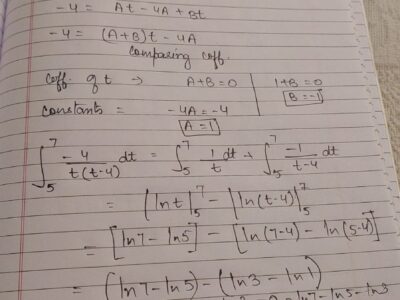 -4 = At - 4A + Bt
-4 = (A+B)t - 4A
Comparing coff.
Coff. of t → A+B=0 | 1+B=0
B=-1
constants = -4A=-4
A=1
∫₅⁷ -4/t(t-4) dt = ∫₅⁷ 1/t dt + ∫₅⁷ -1/t-4 dt
= |ln t|₅⁷ - |ln(t-4)|₅⁷
= [ln7-ln5] - [ln(7-4) - ln(5-4)]
= (ln7-ln5) - (ln3 - ln1)
ln7-ln5-ln3